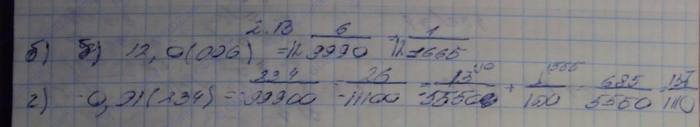 2.13
б) б) 12,0(006) = 12 6/9990 = 12 1/1665
г) -0,01(234) = - 234/99900 = - 26/11100 = - 13/5550 + 1/100 685/5550 137/1110